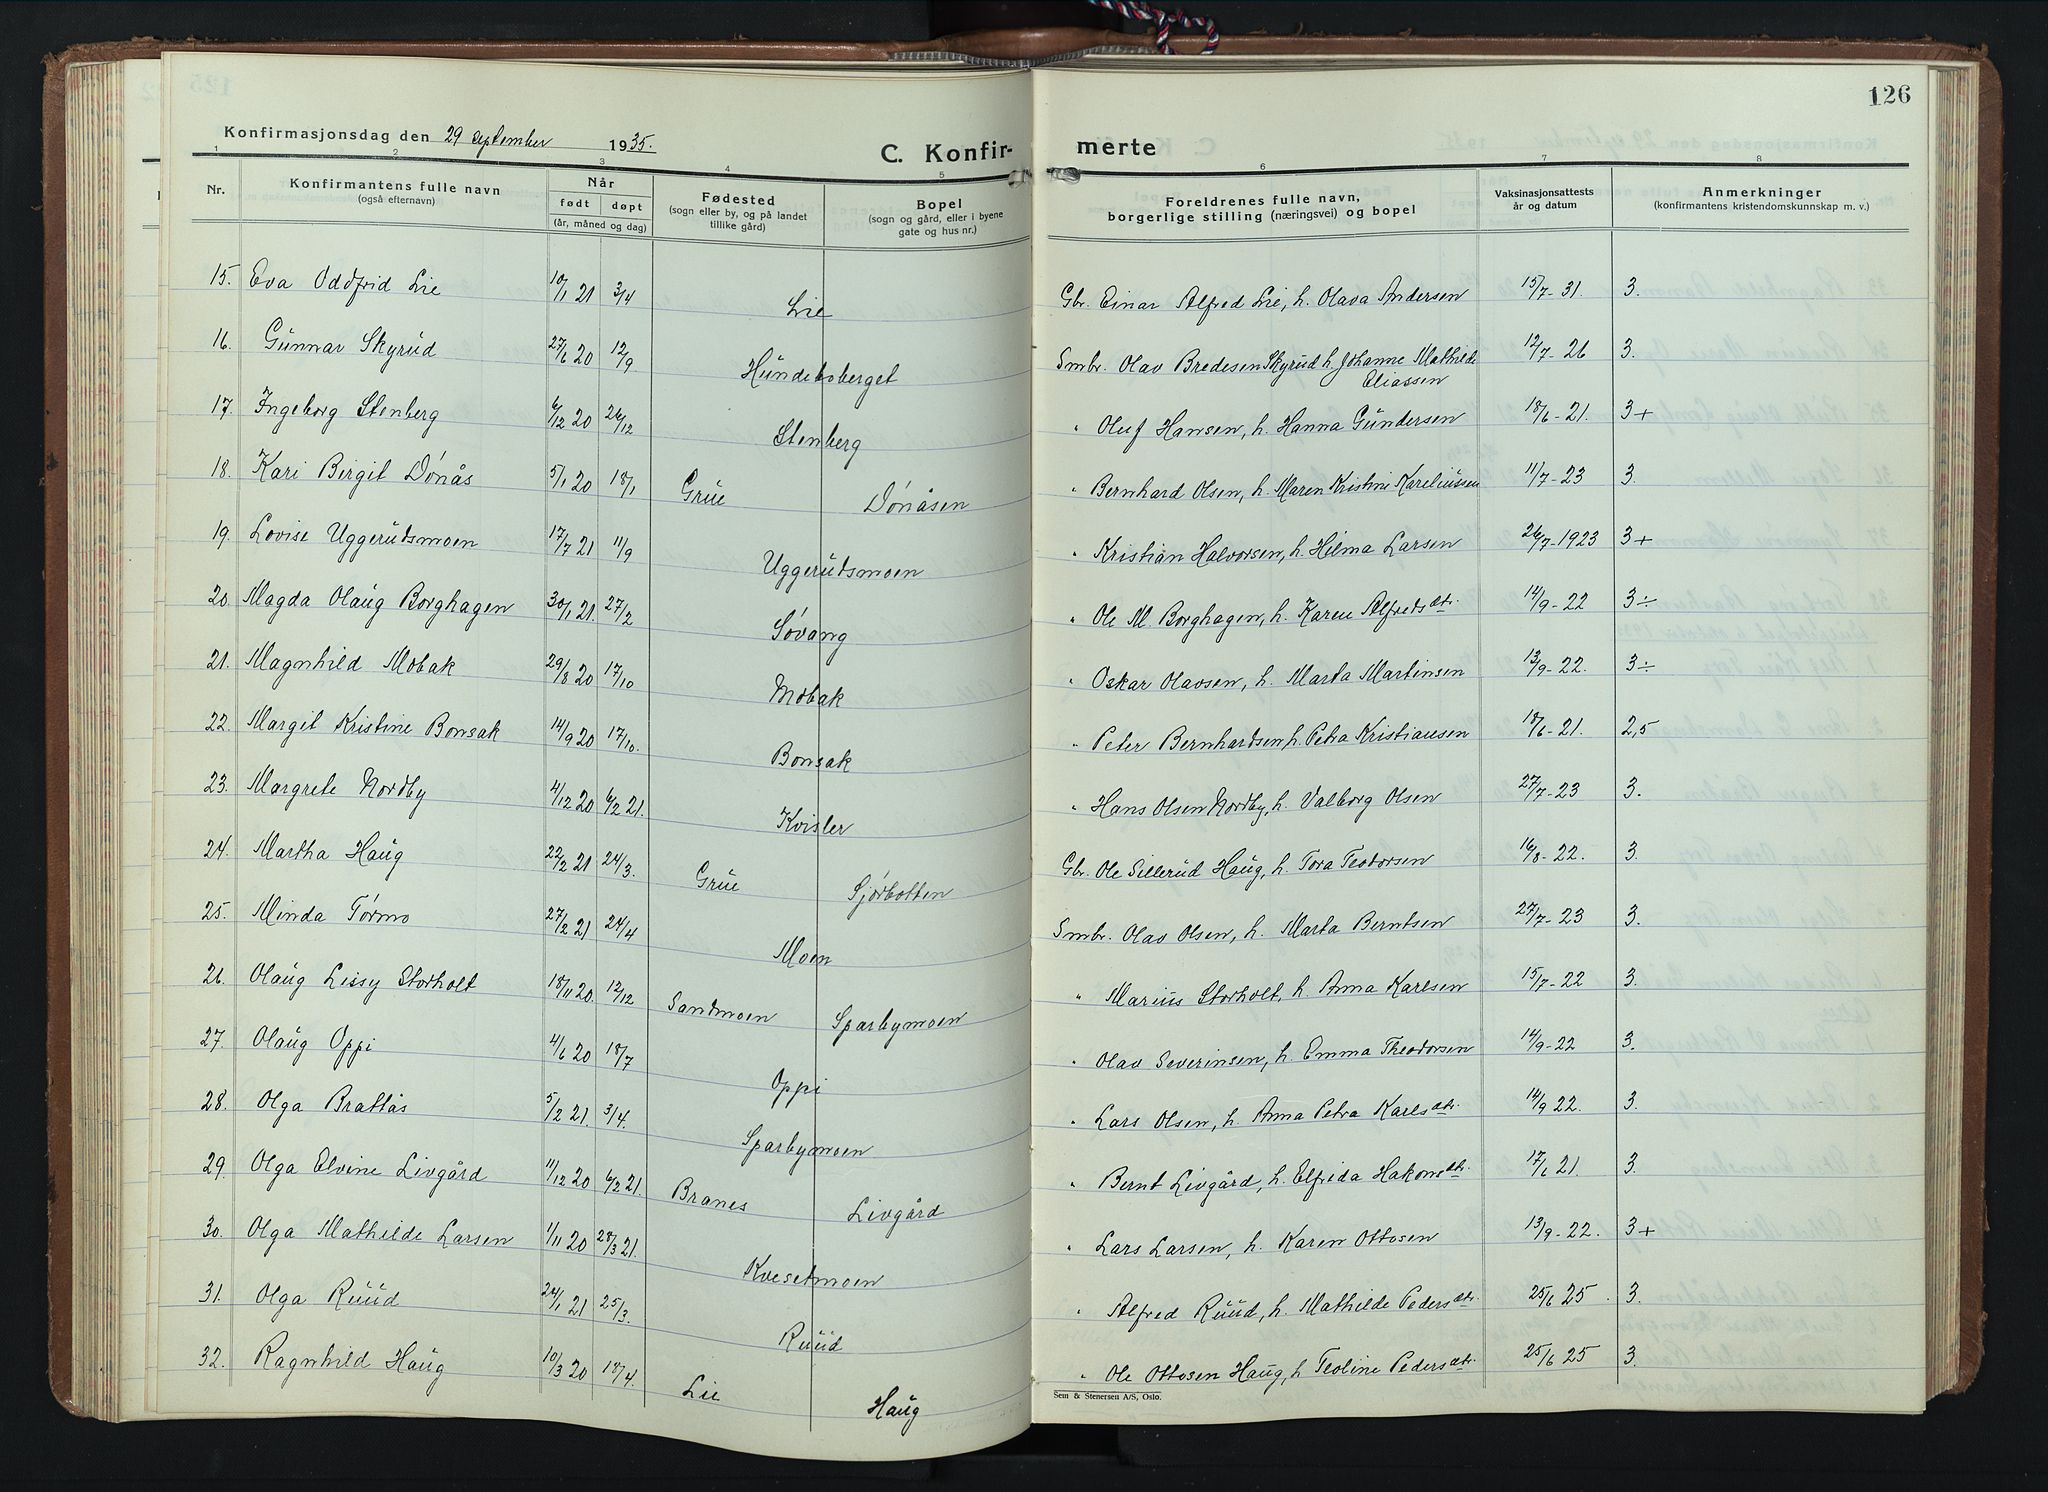 126
Konfirmasjonsdag den 29 september 1935.
C. Konfir- merte
1 2 3 4 5 6 7 8
Nr. Konfirmantens fulle navn (også efternavn) Når født døpt (år, måned og dag) Fødested (sogn eller by, og på landet tillike gård) Bopel (sogn og gård, eller i byene gate og hus nr.) Foreldrenes fulle navn, borgerlige stilling (næringsvei) og bopel Vaksinasjonsattests år og datum Anmerkninger (konfirmantens kristendomskunnskap m. v.)
15. Eva Oddfrid Lie 10/1 21 3/4 Lie Gbr. Einar Alfred Lie, h. Olava Andersen 15/7-31. 3.
16. Gunnar Skyrud 27/6 20 12/9 Hundeboberget Smbr. Olav Bredesen Skyrud h. Johanne Mathilde Eliassen 12/7-26 3.
17. Ingeborg Stenberg 6/12 20 26/12 Stenberg " Oluf Hansen, h. Hanna Gundersen 18/6-21. 3+
18. Kari Birgit Dønås 5/1 20 18/1 Grue Dønåsen " Bernhard Olsen, h. Maren Kristine Kareliussen 11/7-23 3.
19. Lovise Uggerudsmoen 17/7 21 11/9 Uggerudsmoen " Kristian Halvorsen, h. Hilma Larsen 26/7-1923 3+
20. Magda Olaug Borghagen 30/1 21. 27/2 Søvang " Ole M. Borghagen, h. Karen Alfredsdtr. 14/9-22 3÷
21. Magnhild Mobak 29/8 20 17/10 Mobak " Oskar Olavsen, h. Marta Martinsen 13/9-22. 3÷
22. Margit Kristine Bonsak 14/9 20 17/10. Bonsak " Peter Bernhardsen, h. Petra Kristiansen 18/6-21. 2,5
23. Margrete Nordby 4/12 20 6/2 21. Kvisler " Hans Olsen Nordby, h. Valborg Olsen 27/7-23 3.
24. Martha Haug 22/2 21 24/3. Grue Sjørbotten Gbr. Ole Sillerud Haug, h. Tora Teodorsen 16/8-22. 3.
25. Minda Tørmo 27/2 21 24/4 Moen Smbr. Olav Olsen, h. Marta Berntsen 27/7-23 3.
26. Olaug Lissy Storholt 18/11 20. 12/12 Sandmoen Sparbymoen " Marius Storholt, h. Anna Karlsen 15/7-22 3.
27. Olaug Oppi 4/6 20 18/7 Oppi " Olav Severinsen, h. Emma Theodorsen 14/9-22 3.
28. Olga Brattås 5/2 21. 3/4. Sparbymoen " Lars Olsen, h. Anna Petra Karlsdtr. 14/9 22. 3.
29. Olga Elvine Livgård 11/12 20 6/2 21. Branes Livgård " Bernt Livgård, h. Elfrida Hakonsdtr. 17/6 21. 3.
30. Olga Mathilde Larsen 1/11 20 28/3 21. Kvesetmoen " Lars Larsen, h. Karen Ottosen 13/9-22. 3+
31. Olga Ruud 24/1 21 25/3. Ruud " Alfred Ruud, h. Mathilde Pedersdtr. 25/6 25. 3.
32. Ragnhild Haug 10/3 20 18/4. Lie Haug " Ole Ottosen Haug, h. Teoline Pedersdtr. 25/6 25 3.
Sem & Stenersen A/S, Oslo.